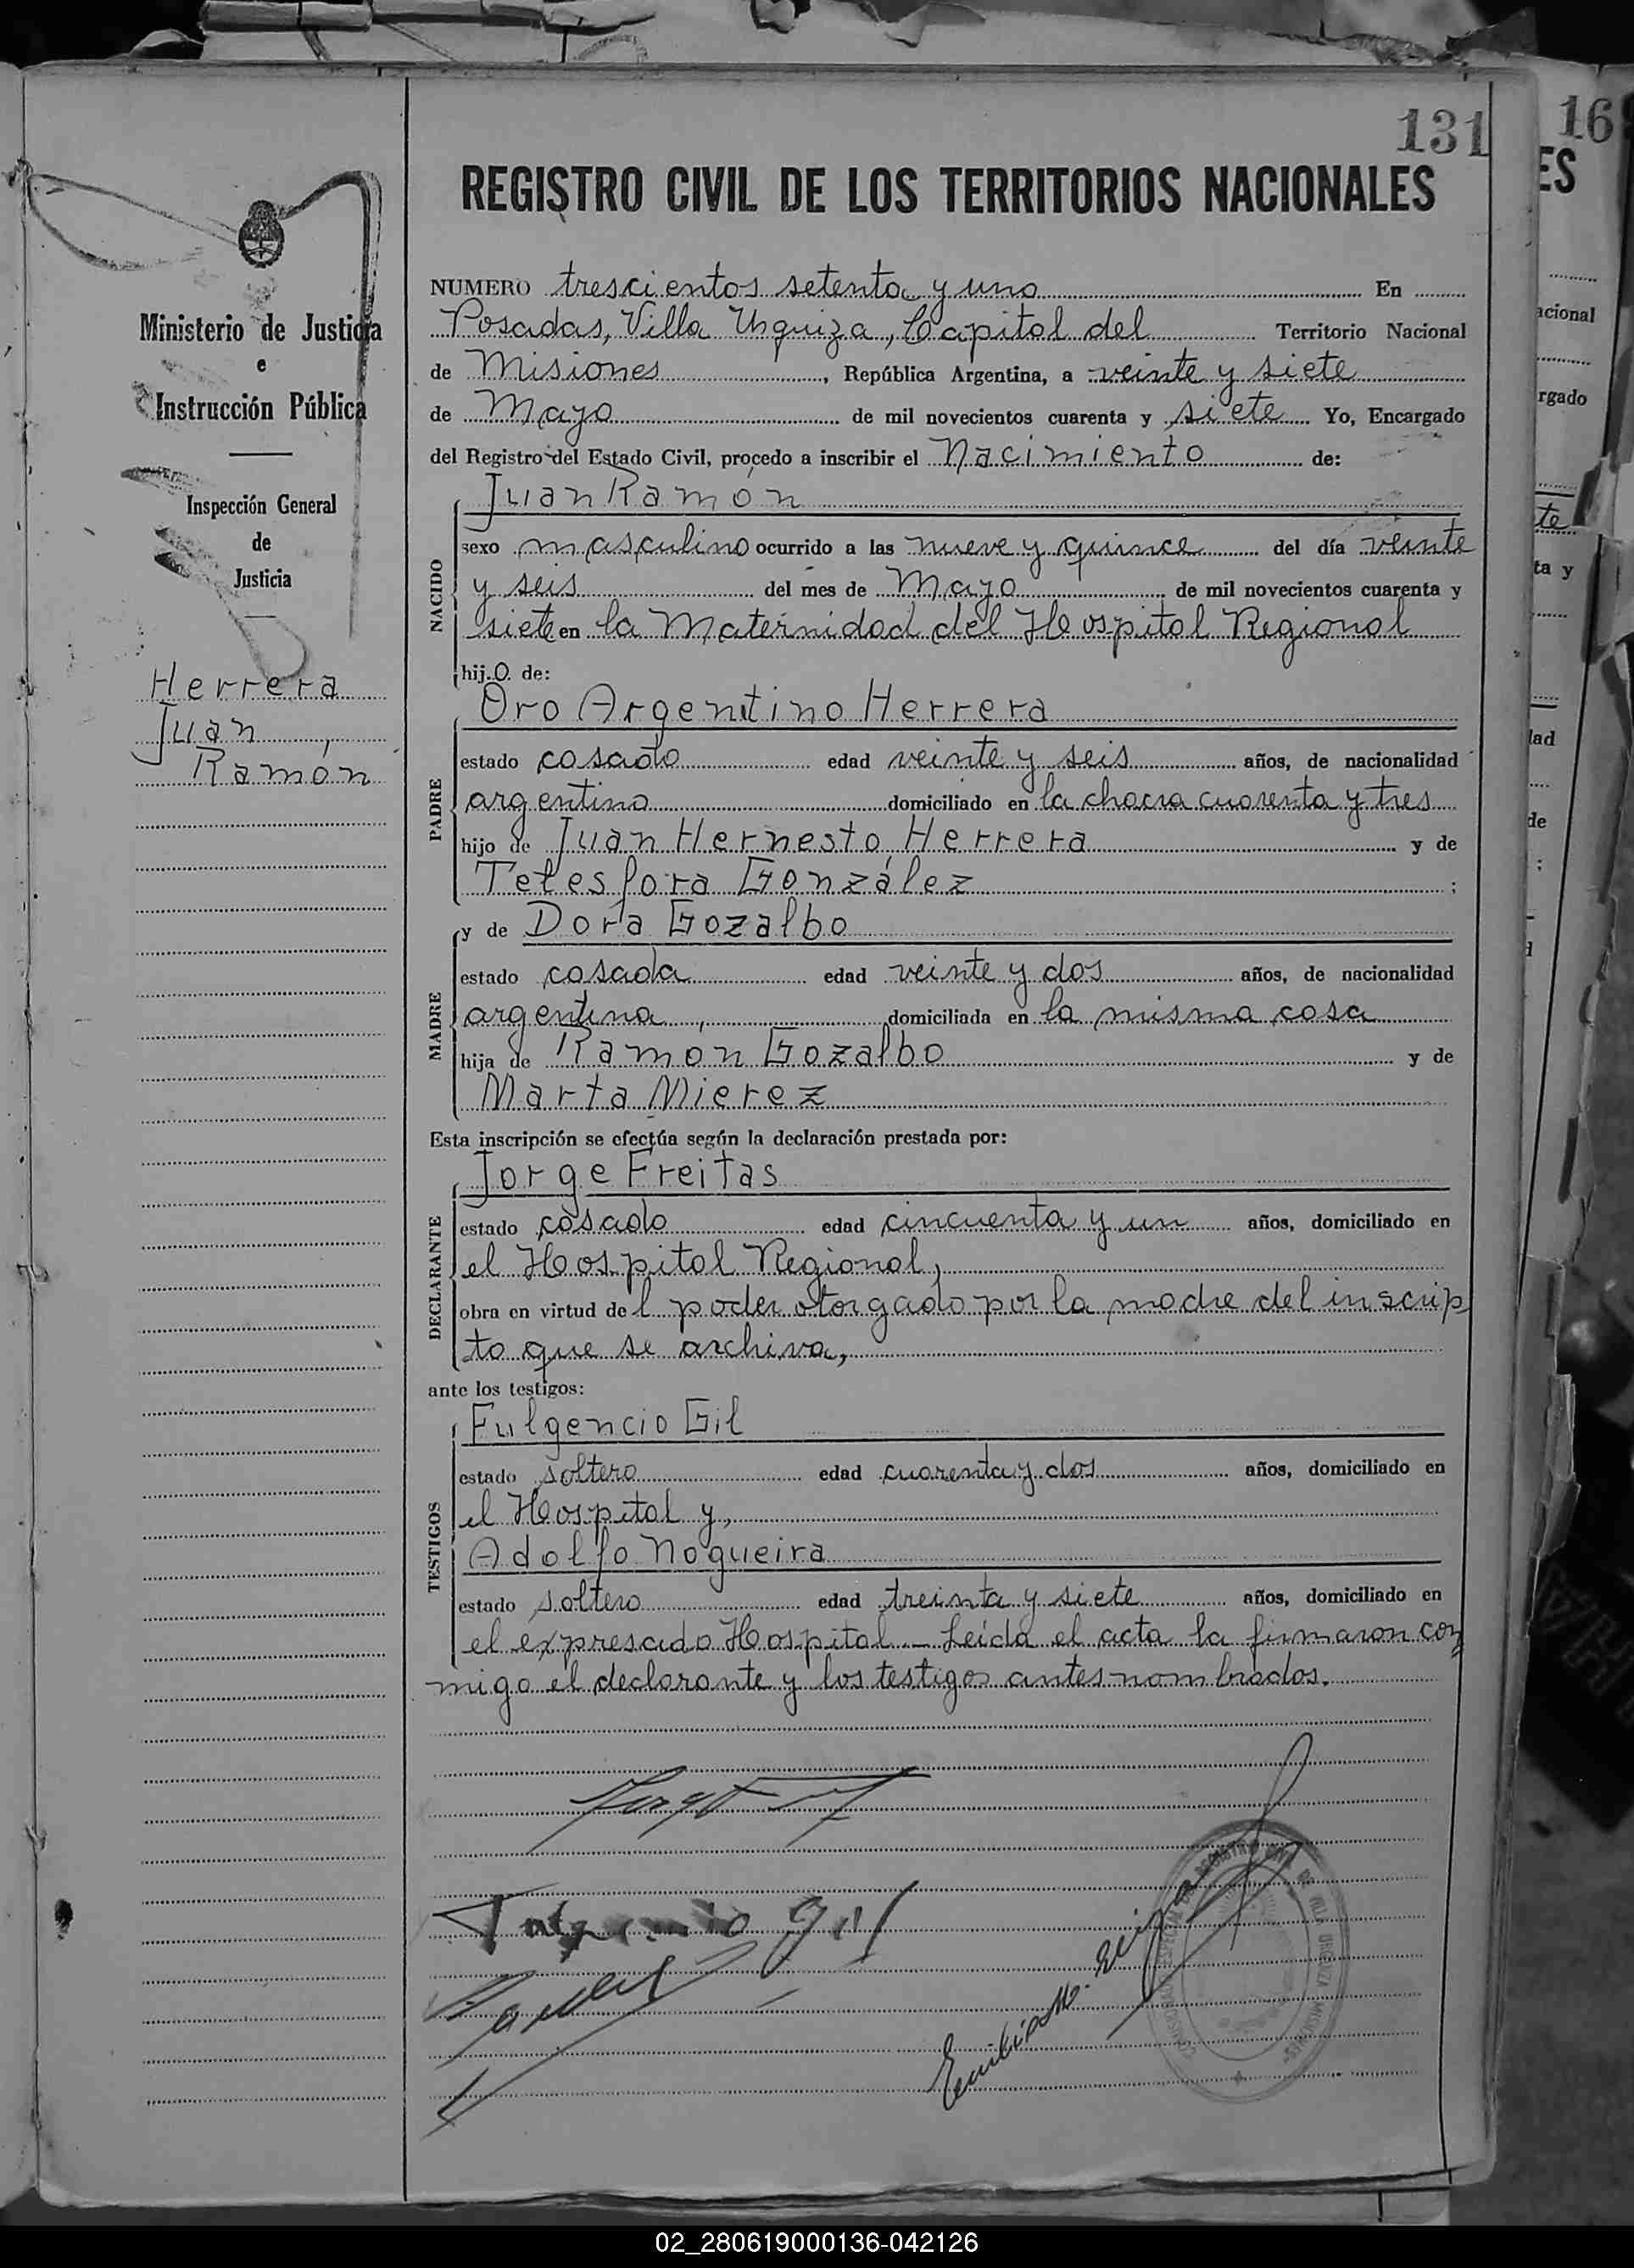 131
16
REGISTRO CIVIL DE LOS TERRITORIOS NACIONALES
ES
Ministerio de Justicia
e
Instrucción Pública
Inspección General
de
Justicia
Herrera
Juan
Ramón
NUMERO trescientos setenta y uno En
Posadas, Villa Urquiza, Capital del Territorio Nacional
de Misiones, República Argentina, a veinte y siete
de Mayo de mil novecientos cuarenta y siete Yo, Encargado
del Registro del Estado Civil, procedo a inscribir el Nacimiento de:
NACIDO
Juan Ramón
sexo masculino ocurrido a las nueve y quince del día veinte
y seis del mes de Mayo de mil novecientos cuarenta y
siete en la Maternidad del Hospital Regional
hijo de:
PADRE
Oro Argentino Herrera
estado casado edad veinte y seis años, de nacionalidad
argentino domiciliado en la chacra cuarenta y tres
hijo de Juan Hernesto Herrera y de
Telesfora González ;
MADRE
y de Dora Gozalbo
estado casada edad veinte y dos años, de nacionalidad
argentina, domiciliada en la misma casa
hija de Ramón Gozalbo y de
Marta Mierez
Esta inscripción se efectúa según la declaración prestada por:
DECLARANTE
Jorge Freitas
estado casado edad cincuenta y un años, domiciliado en
el Hospital Regional,
obra en virtud del poder otorgado por la madre del inscrip
to que se archiva,
ante los testigos:
TESTIGOS
Fulgencio Gil
estado soltero edad cuarenta y dos años, domiciliado en
el Hospital y,
Adolfo Nogueira
estado soltero edad treinta y siete años, domiciliado en
el expresado Hospital.- Leída el acta la firmaron con
migo el declarante y los testigos antes nombrados.
Fulgencio Gil
acional
rgado
te
ta y
lad
de
;
02_280619000136-042126